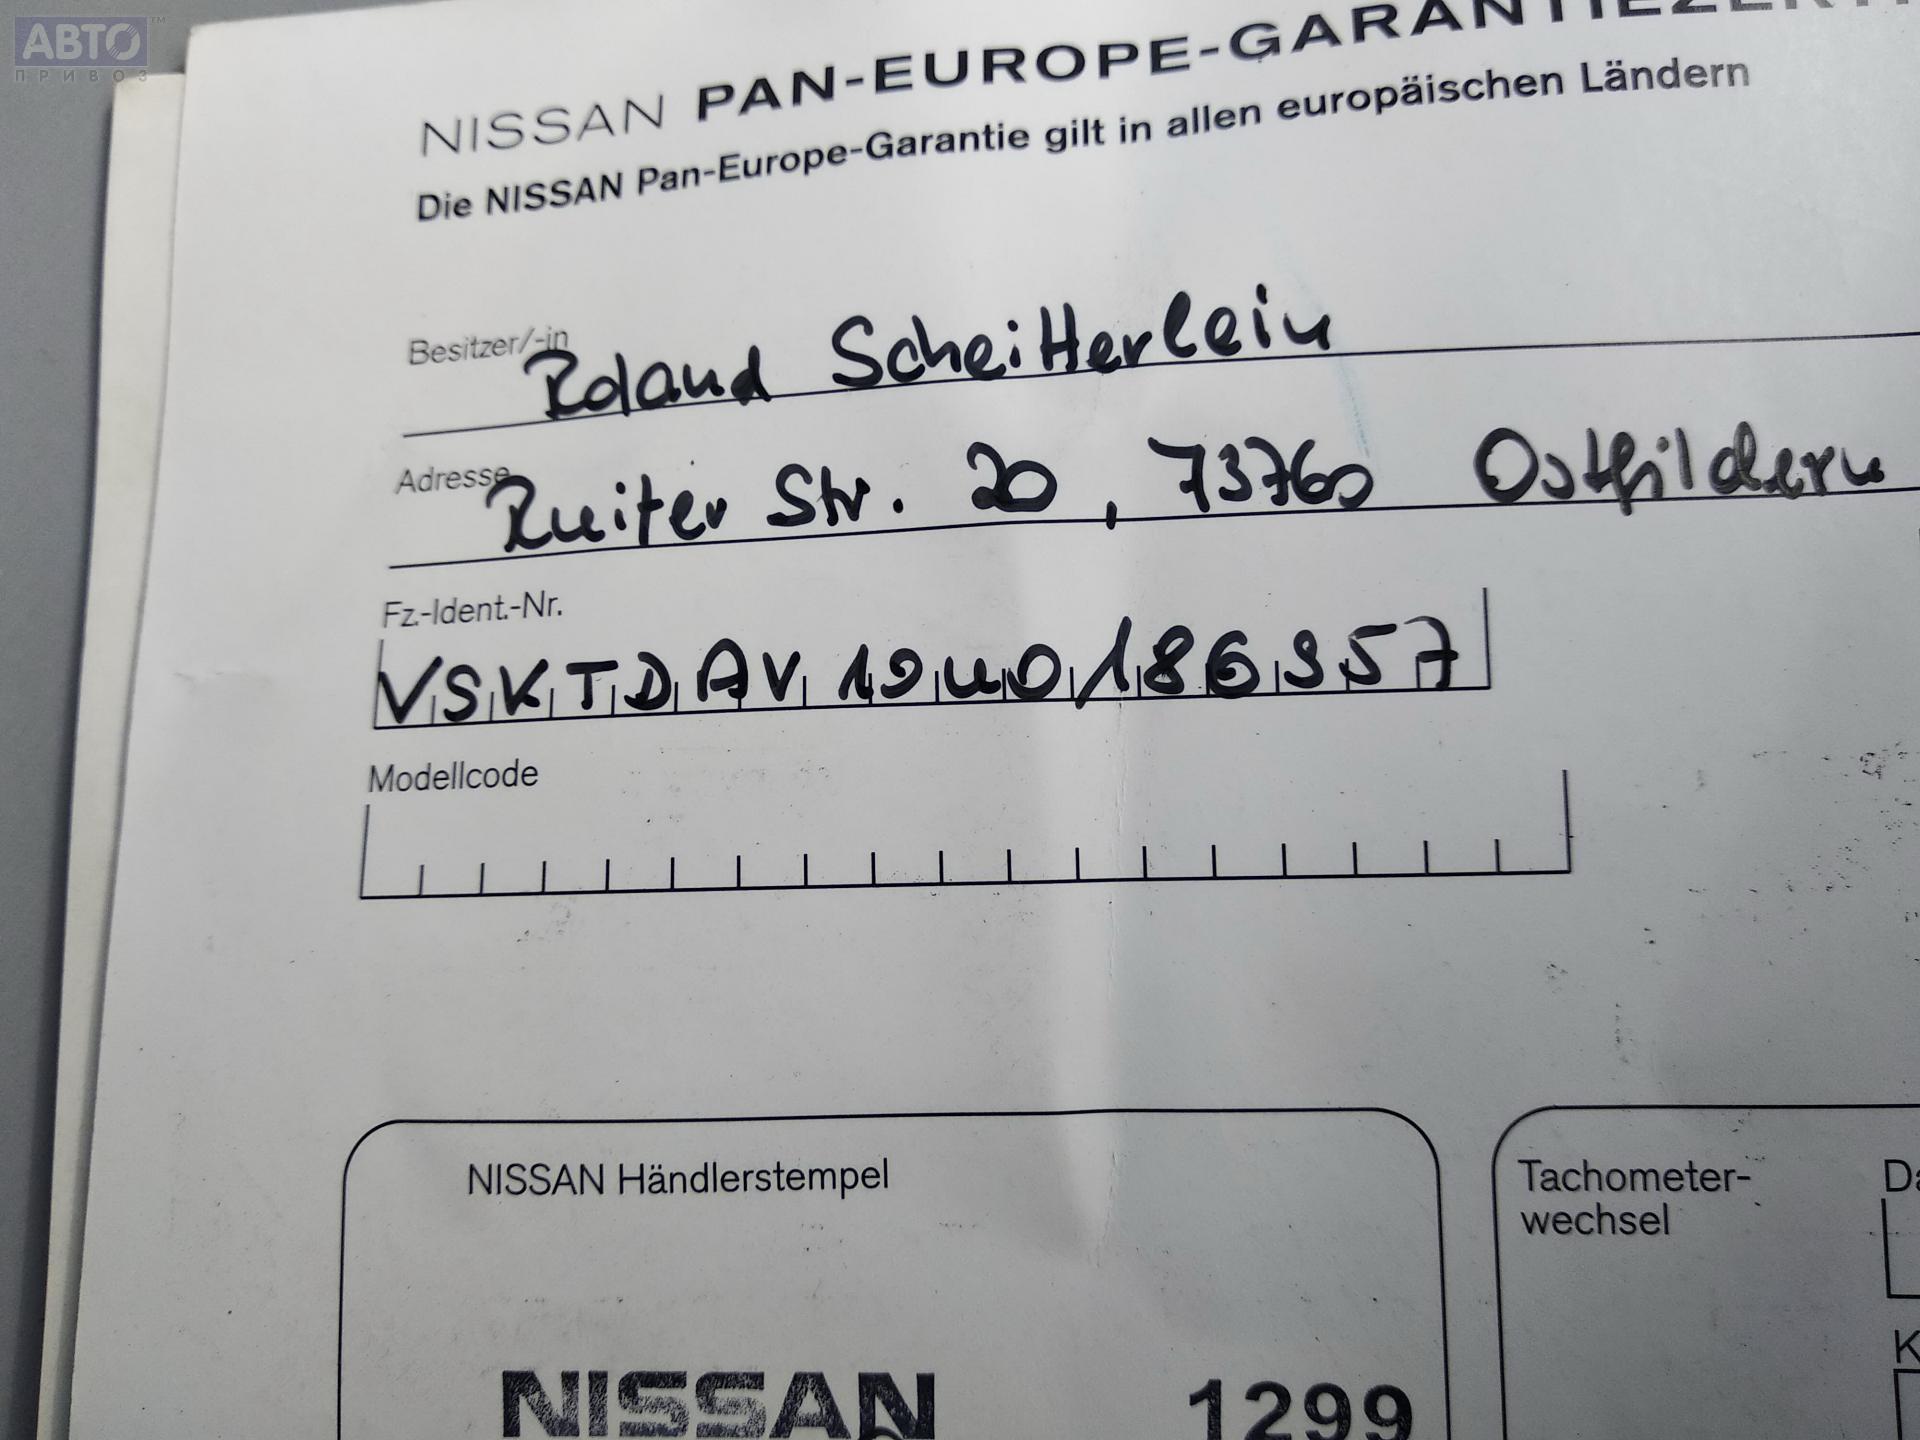 АВТО™
ПРИВОЗ
NISSAN PAN-EUROPE-GARANTIEZERTI
Die NISSAN Pan-Europe-Garantie gilt in allen europäischen Ländern
Besitzer/-in
Roland Scheitterlein
Adresse
Ruiter Str. 20, 73760 Ostfildern
Fz.-Ident.-Nr.
VSKTDAV10U0186957
Modellcode
NISSAN Händlerstempel
Tachometer-
wechsel
Da
K
NISSAN 1299